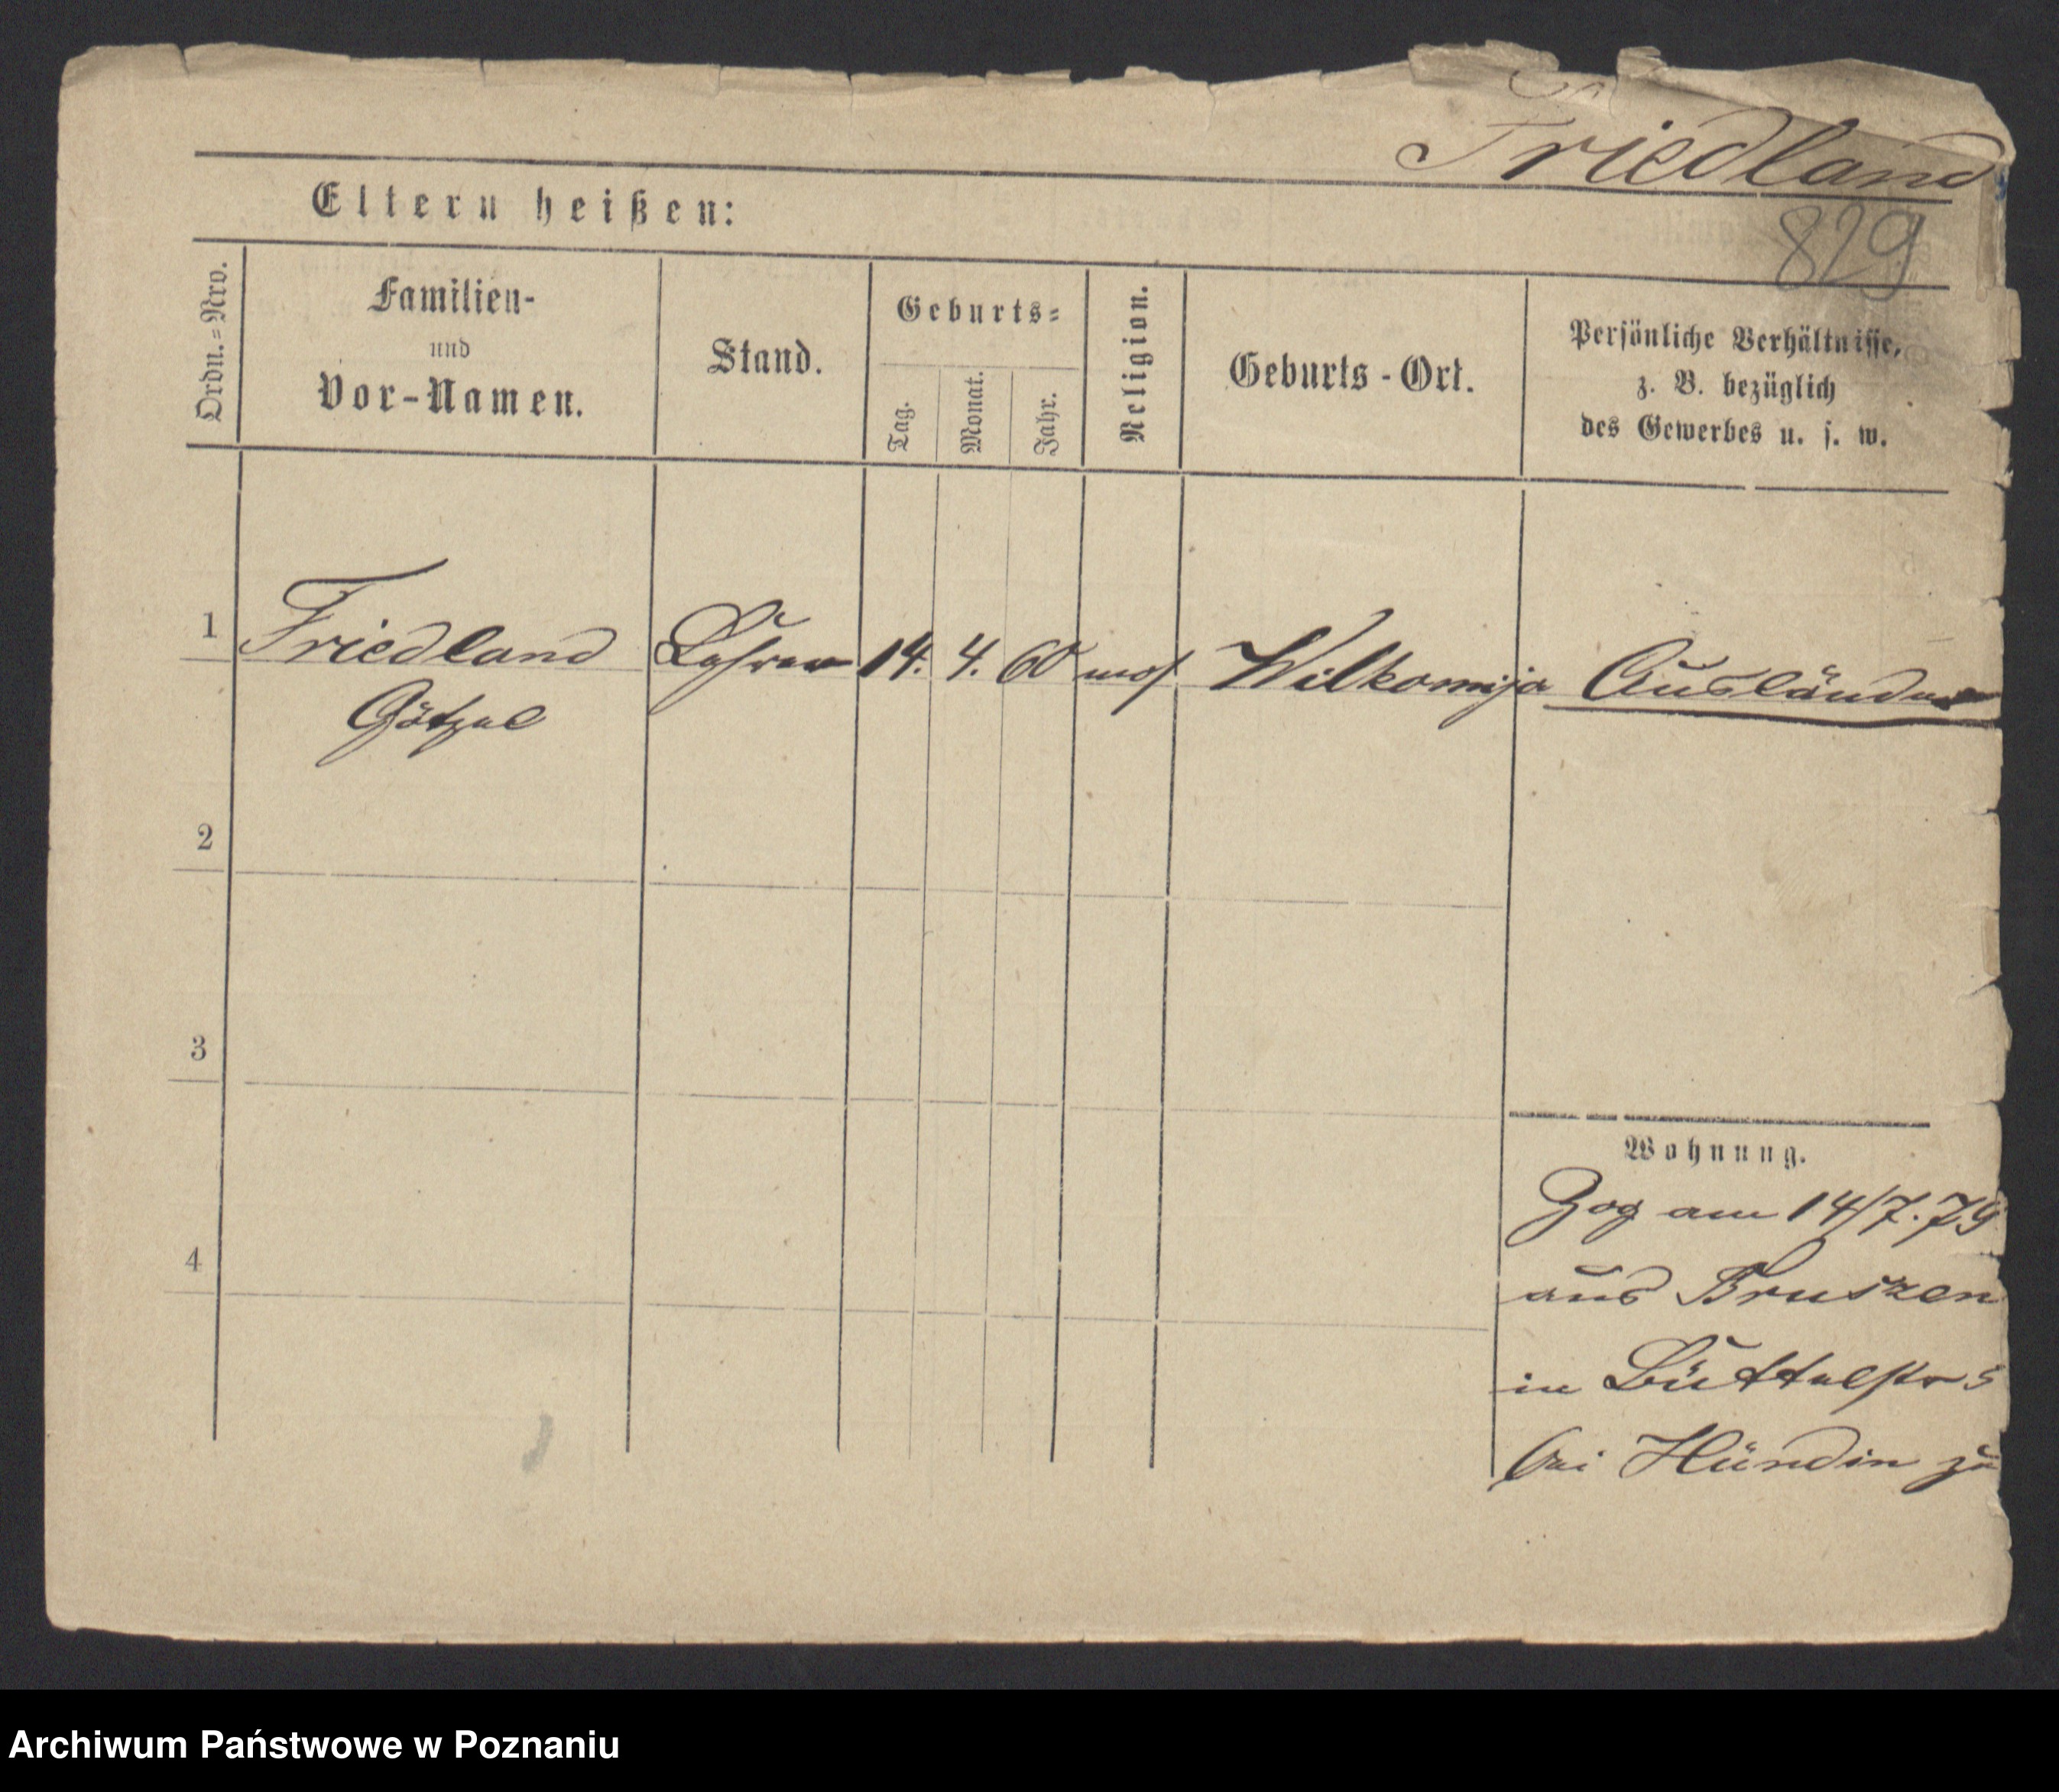 Friedland
829
Eltern heißen:
Ordn.=Nro.
Familien-
und
Vor-Namen.
Stand.
Geburts=
Tag.
Monat.
Jahr.
Religion.
Geburts-Ort.
Persönliche Verhältnisse,
z. B. bezüglich
des Gewerbes u. s. w.
1 Friedland 14. 4. 60 mos Wilkomija Ausländer
Götzel
2
3
4
Wohnung.
Zog am 14/7.79
aus Bruszen
in Büttelstr 5
bei Hündin zu
Archiwum Państwowe w Poznaniu